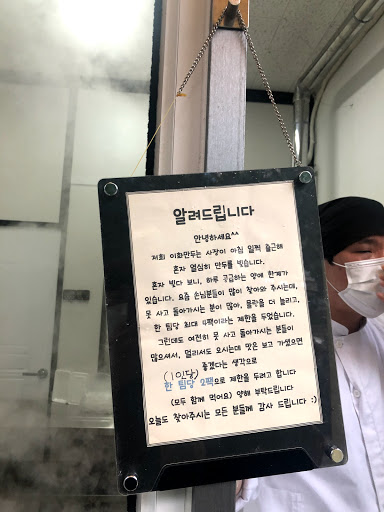 알려드립니다
안녕하세요^^
저희 이화만두는 사장이 아침 일찍 출근해
혼자 열심히 만두를 빚습니다.
혼자 빚다 보니, 하루 공급하는 양에 한계가
있습니다. 요즘 손님분들이 많이 찾아와 주시는데,
못 사고 돌아가시는 분이 많아, 물량을 더 늘리고,
한 팀당 최대 4팩이라는 제한을 두었습니다.
그런데도 여전히 못 사고 돌아가시는 분들이
많으셔서, 멀리서도 오시는데 맛은 보고 가셨으면
좋겠다는 생각으로
(1인당)
한 팀당 2팩으로 제한을 두려고 합니다
(모두 함께 먹어요) 양해 부탁드립니다
오늘도 찾아주시는 모든 분들께 감사 드립니다 :)